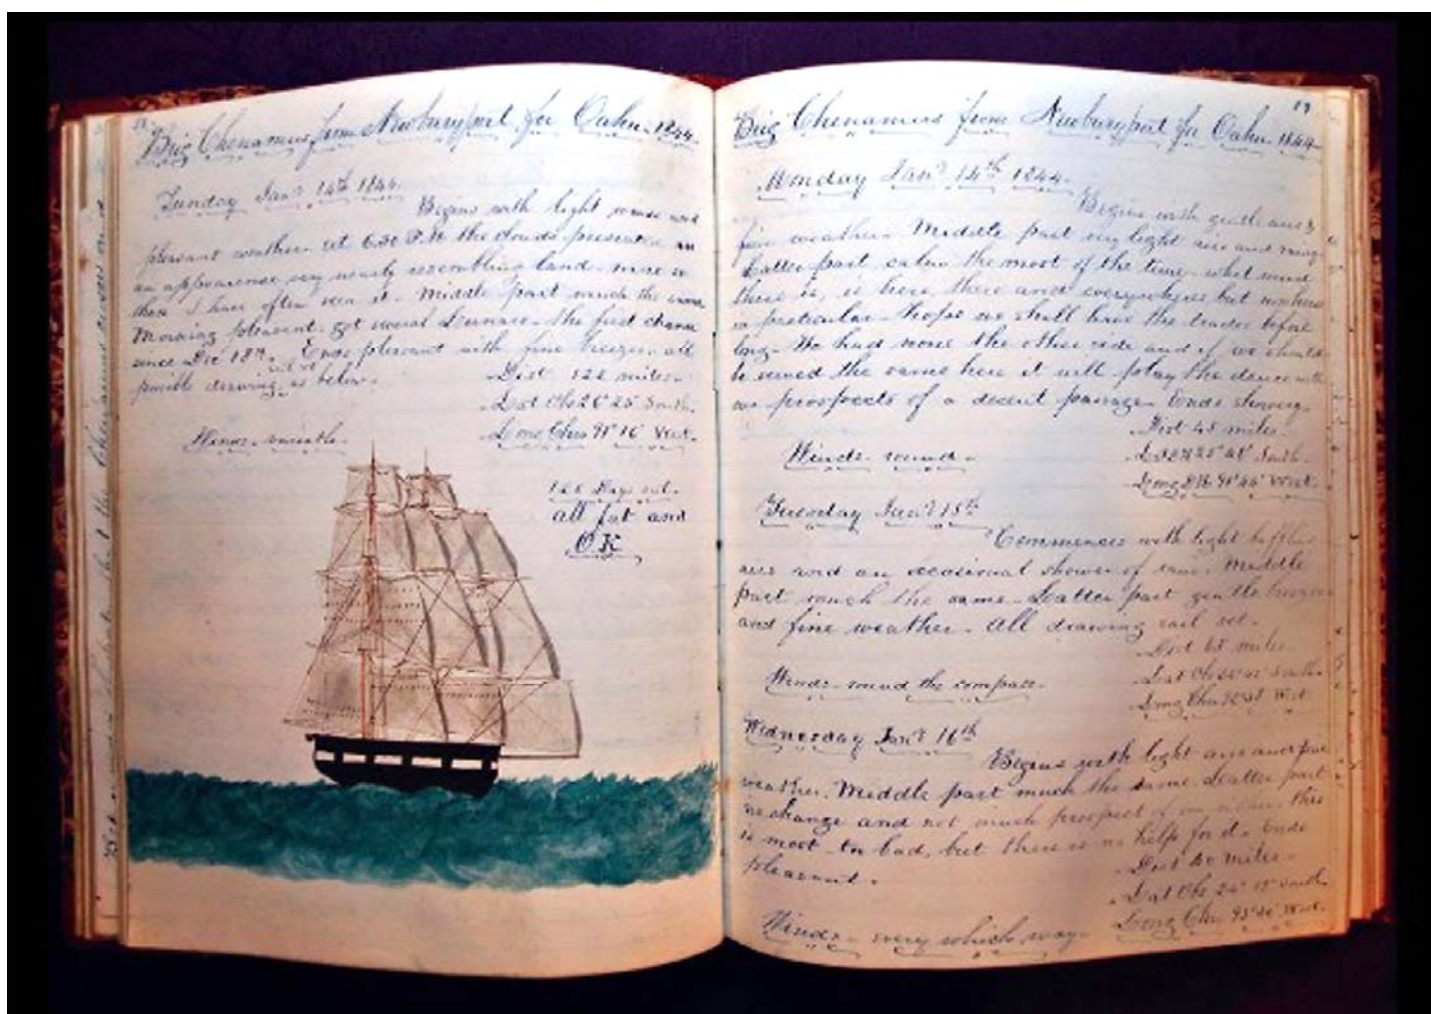 Brig Chenamus from Newburyport for Oahu. 1844.
Sunday Jan? 14th 1844.
Begins with light winds and
pleasant weather. at 6.30 P.M. the clouds presented an
an appearance very nearly resembling land. more so
than I have often seen it. Middle part much the same
Morning pleasant. got several Lunars. the first chance
since Dec 18th. Ends pleasant with fine breezes. all
sail set
possible drawing, as below.
Dist. 128 miles.
Lat Obs 26° 25' South.
Long Chro 91° 16' West.
Winds. variable.
128 Days out.
all fat and
O.K.
84
Brig Chenamus from Newburyport for Oahu. 1844.
Monday Jan? 14th 1844.
Begins with gentle airs &
fine weather. Middle part very light airs and
Latter part, calm the most of the time. what wind
there is, is here, there and everywhere, but nowhere
in particular. hope we shall have the trades before
long. We had none the other side and if we should
be served the same here it will play the deuce with
our prospects of a decent passage. Ends showery.
Dist 45 miles.
South.
Long West.
Winds. round.
Tuesday Jan? 15th
Commences with light baffling
airs and an occasional shower of rain. Middle
part much the same. Latter part gentle breezes
and fine weather. All drawing sail set.
Dist 65 miles.
Lat Obs South.
Long Chro West.
Winds. round the compass.
Wednesday Jan? 16th
Begins with light airs and fine
weather. Middle part much the same. Latter part
no change and not much prospect of any either. this
is most to bad, but there is no help for it. Ends
pleasant.
Dist 40 miles.
Lat Obs 24° South.
Long Chro West.
Winds. every which way.